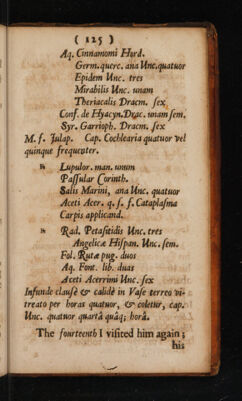 ( 125 )
Aq. Cinnamomi Hord.
Germ. querc. ana Unc. quatuor
Epidem Unc. tres
Mirabilis Unc. unam
Theriacalis Dracm. sex
Conf. de Hyacyn. Drac. unam sem.
Syr. Garrioph. Dracm. sex
M. f. Julap. Cap. Cochlearia quatuor vel
quinque frequenter.
℞ Lupulor. man. unum
Passular Corinth.
Salis Marini, ana Unc. quatuor
Aceti Acer. q. s. f. Cataplasma
Carpis applicand.
℞ Rad. Petasitidis Unc. tres
Angelicæ Hispan. Unc. sem.
Fol. Rutæ pug. duos
Aq. Font. lib. duas
Aceti Acerrimi Unc. sex
Infunde clausè & calidè in Vase terreo vi-
treato per horas quatuor, & coletur, cap.
Unc. quatuor quartâ quâq; horâ.
The fourteenth I visited him again;
his